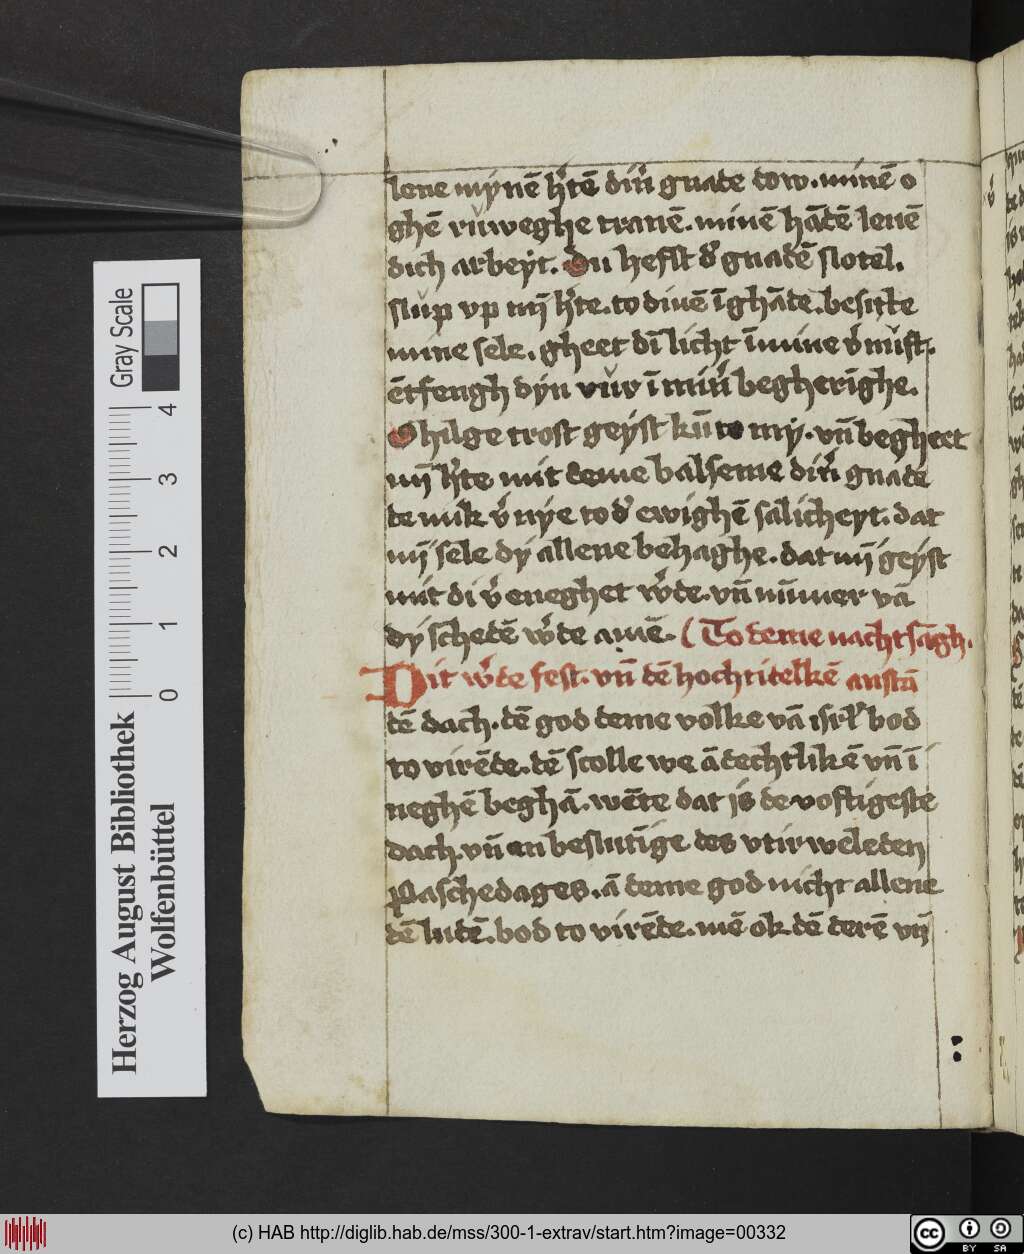 lene mynē h̾tē din̾ gnade dow. minē o
ghē ruweghe tranē. minē hādē lenē
dich arbeyt. Du hefst d̾ gnadē slotel.
slup vp mȳ h̾te. to dinē īghāde. besitte
mine sele. gheet dī licht ī mine v̾nuft.
ētfengh dyn vur ī min̾ begherīghe.
O hilge trost geyst kū to my. vn̄ begheet
mȳ h̾te mit deme balseme din̾ gnade
de mik v̾nye to d̾ ewighē salicheyt. dat
mȳ sele dy allene behaghe. dat mȳ geyst
mit di v̾eneghet w̾de. vn̄ nūmer vā
dy schedē w̾de amē. (To deme nachtsāgh.
Dit w̾de fest. vn̄ dē hochtitelkē anstā
dē dach. dē god deme volke vā isrl̾ bod
to virēde. dē scolle we ādechtlikē vn̄ ī
neghē beghā. wēte dat is de voftigeste
dach. vn̄ en beslutīge des vtirweleden
Paschedages. ā deme god nicht allene
dē ludē. bod to virēde. mē ok dē derē vn̄
Gray Scale
0 1 2 3 4
Herzog August Bibliothek
Wolfenbüttel
(c) HAB http://diglib.hab.de/mss/300-1-extrav/start.htm?image=00332
cc BY SA